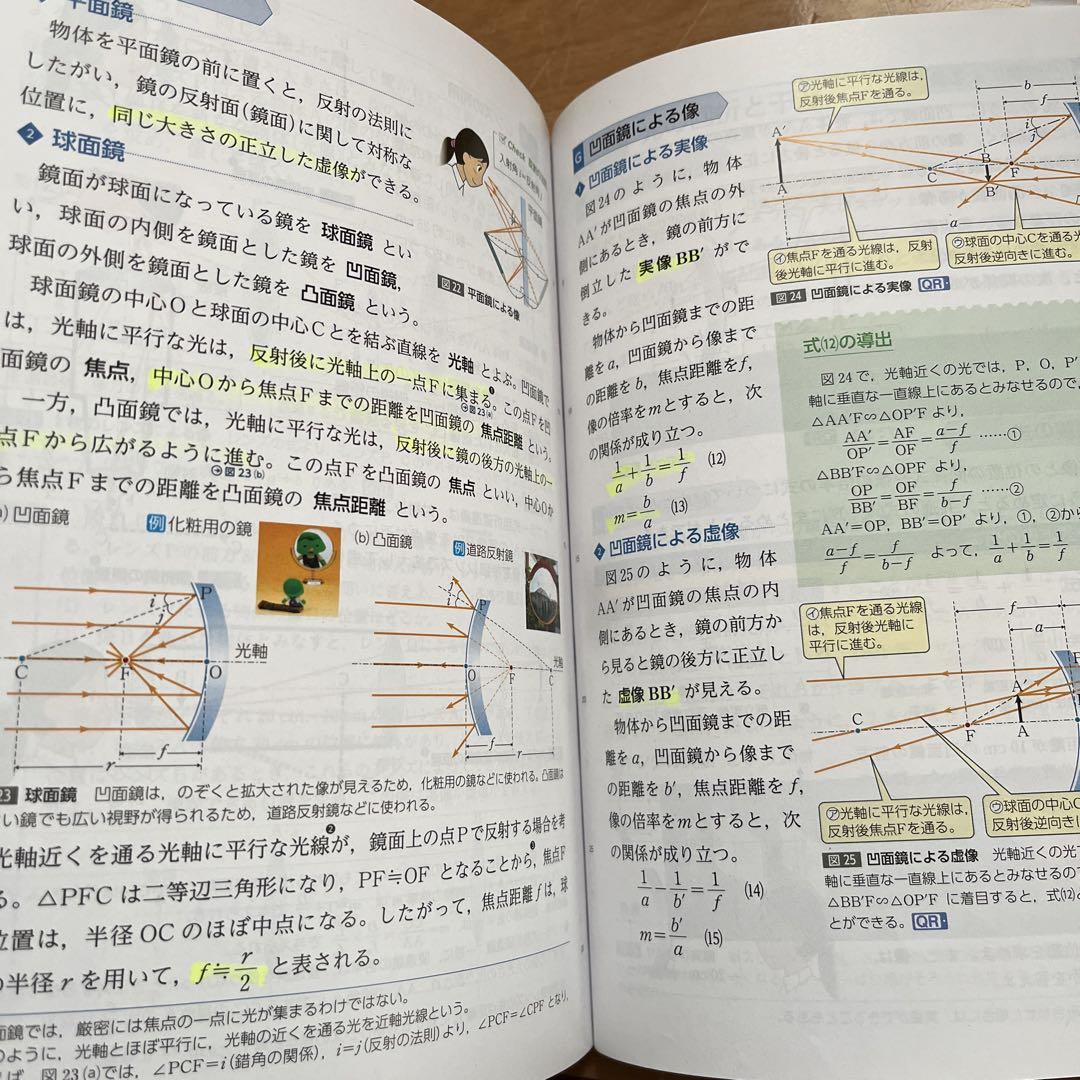 平面鏡
物体を平面鏡の前に置くと，反射の法則に
したがい，鏡の反射面(鏡面)に関して対称な
位置に，同じ大きさの正立した虚像ができる。
Check
図22 平面鏡による像
2 球面鏡
鏡面が球面になっている鏡を 球面鏡 とい
い，球面の内側を鏡面とした鏡を 凹面鏡，
球面の外側を鏡面とした鏡を 凸面鏡 という。
球面鏡の中心Oと球面の中心Cとを結ぶ直線を 光軸 とよぶ。凹面鏡で
は，光軸に平行な光は，反射後に光軸上の一点Fに集まる。この点Fを凹
→図23(a)
面鏡の 焦点，中心Oから焦点Fまでの距離を凹面鏡の 焦点距離 という。
一方，凸面鏡では，光軸に平行な光は，反射後に鏡の後方の光軸上の一
点Fから広がるように進む。この点Fを凸面鏡の 焦点 といい，中心Oか
→図23(b)
ら焦点Fまでの距離を凸面鏡の 焦点距離 という。
(a) 凹面鏡
例 化粧用の鏡
(b) 凸面鏡
例 道路反射鏡
i
j
P
C
F
O
光軸
f
r
i
j
P
O
F
C
光軸
f
r
23 球面鏡 凹面鏡は，のぞくと拡大された像が見えるため，化粧用の鏡などに使われる。凸面鏡は
い鏡でも広い視野が得られるため，道路反射鏡などに使われる。
光軸近くを通る光軸に平行な光線が，鏡面上の点Pで反射する場合を考
る。△PFC は二等辺三角形になり，PF≒OF となることから，焦点F
位置は，半径OCのほぼ中点になる。したがって，焦点距離 f は，球
の半径 r を用いて，f≒r/2 と表される。
面鏡では，厳密には焦点の一点に光が集まるわけではない。
のように，光軸とほぼ平行に，光軸の近くを通る光を近軸光線という。
ば，図23(a)では，∠PCF=i(錯角の関係)，i=j(反射の法則)より，∠PCF=∠CPF となり，
G 凹面鏡による像
1 凹面鏡による実像
図24のように，物体
AA′が凹面鏡の焦点の外
側にあるとき，鏡の前方に
倒立した 実像BB′ がで
きる。
物体から凹面鏡までの距
離をa，凹面鏡から像まで
の距離をb，焦点距離をf，
像の倍率をmとすると，次
の関係が成り立つ。
1/a+1/b=1/f (12)
m=b/a (13)
2 凹面鏡による虚像
図25のように，物体
AA′が凹面鏡の焦点の内
側にあるとき，鏡の前方か
ら見ると鏡の後方に正立し
た 虚像BB′ が見える。
物体から凹面鏡までの距
離をa，凹面鏡から像まで
の距離をb′，焦点距離をf，
像の倍率をmとすると，次
の関係が成り立つ。
1/a−1/b′=1/f (14)
m=b′/a (15)
㋐光軸に平行な光線は，
反射後焦点Fを通る。
b
f
i
j
A′
A
C
B
B′
F
a
㋑焦点Fを通る光線は，反射
後光軸に平行に進む。
㋒球面の中心Cを通る光
反射後逆向きに進む。
図24 凹面鏡による実像 QR
式(12)の導出
図24で，光軸近くの光では，P，O，P′
軸に垂直な一直線上にあるとみなせるので，
△AA′F∽△OP′F より，
AA′/OP′=AF/OF=a−f/f ……①
△BB′F∽△OPF より，
OP/BB′=OF/BF=f/b−f ……②
AA′=OP，BB′=OP′ より，①，②から
a−f/f=f/b−f よって，1/a+1/b=1/f
㋑焦点Fを通る光線
は，反射後光軸に
平行に進む。
f
a
A′
C
F
A
㋐光軸に平行な光線は，
反射後焦点Fを通る。
㋒球面の中心C
反射後逆向きに
図25 凹面鏡による虚像 光軸近くの光で
軸に垂直な一直線上にあるとみなせるので
△BB′F∽△OP′F に着目すると，式(12)と
とができる。QR